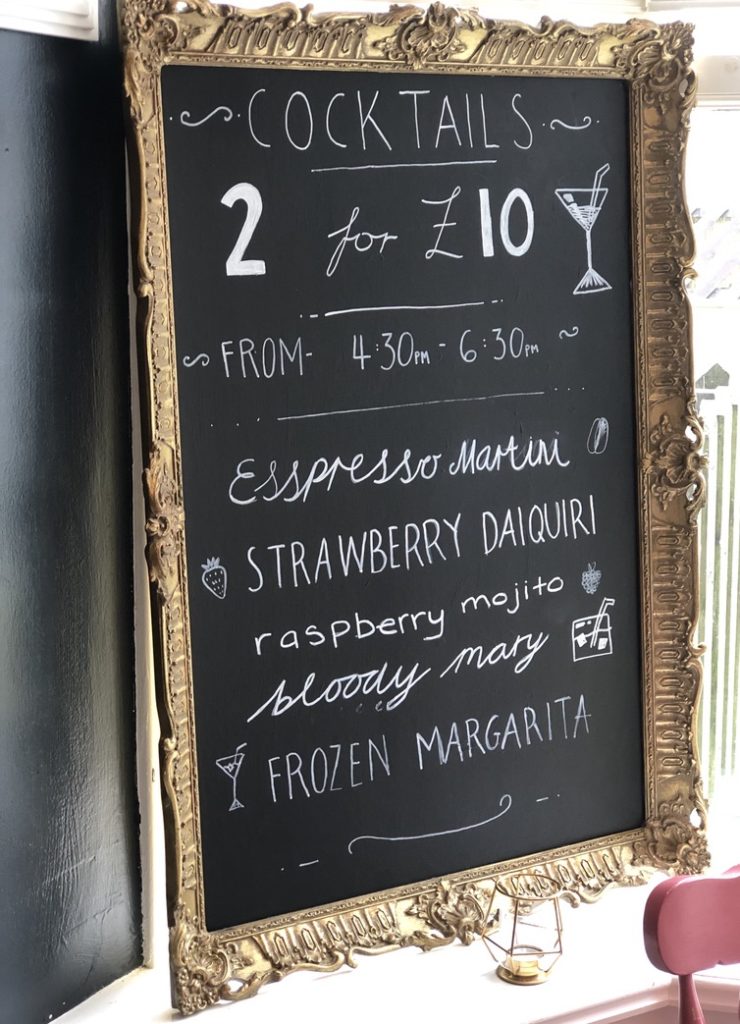 COCKTAILS
2 for £10
FROM- 4:30PM - 6:30PM
Esspresso Martini
STRAWBERRY DAIQUIRI
raspberry mojito
bloody mary
FROZEN MARGARITA